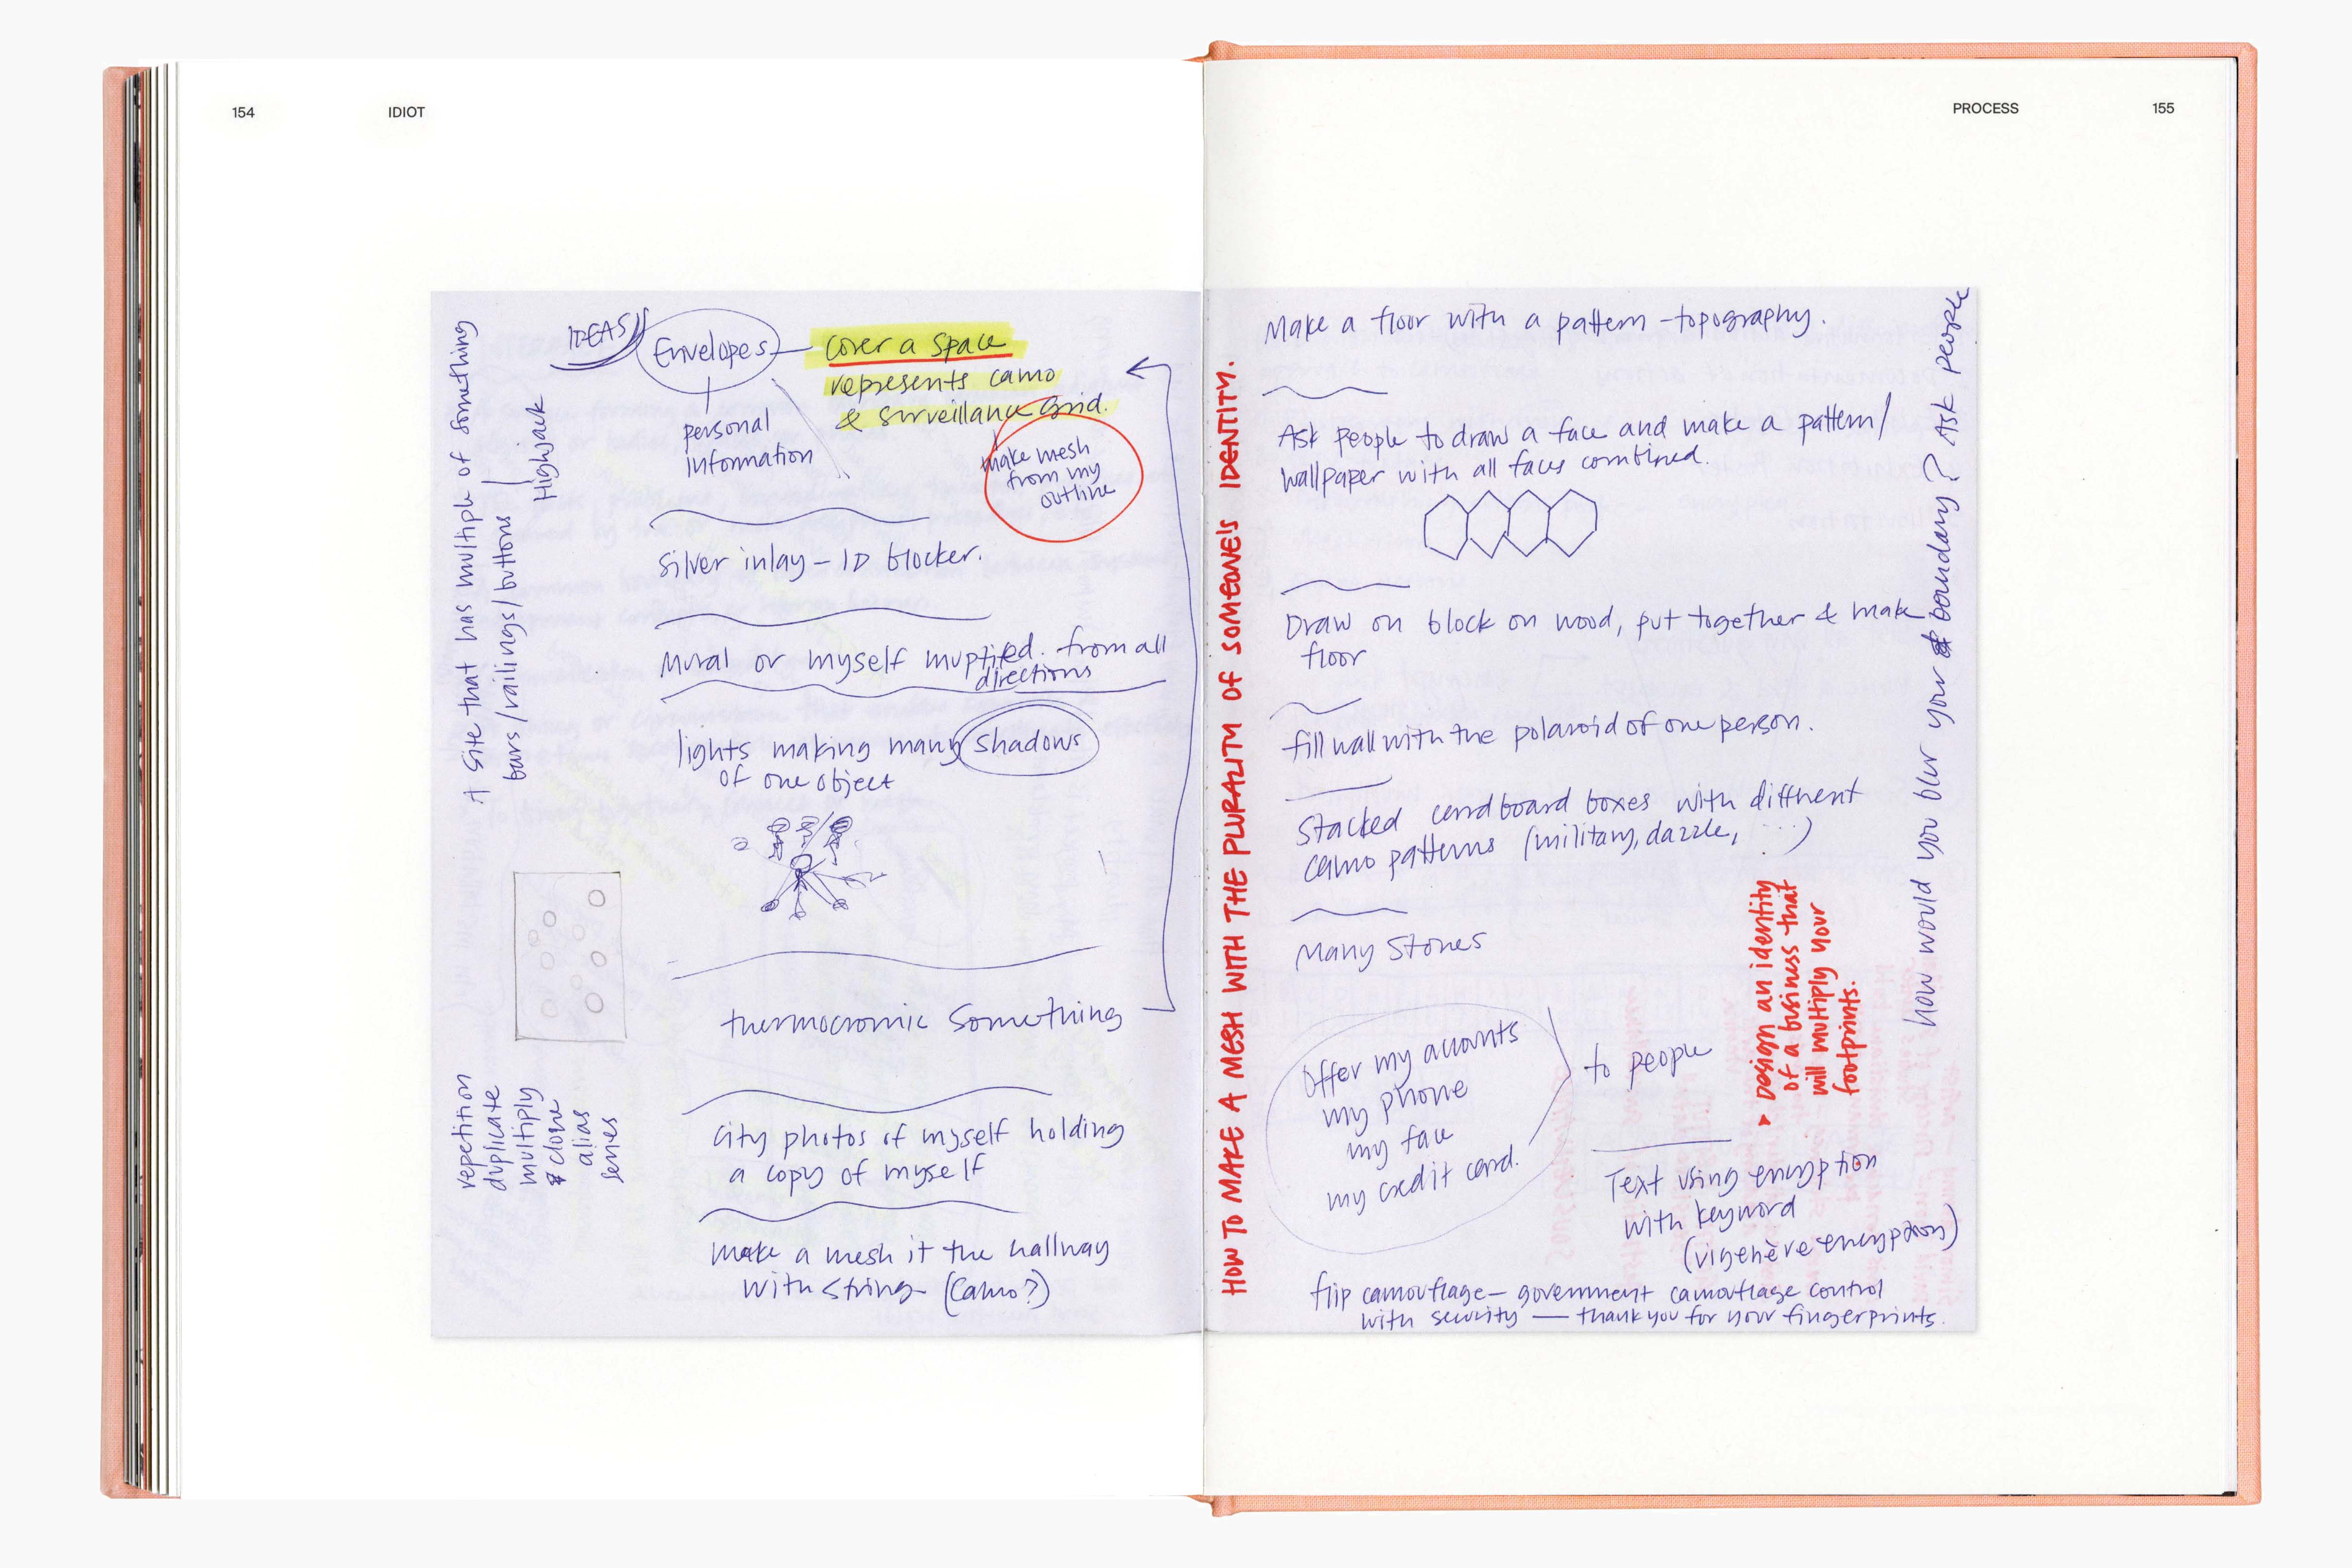 154
IDIOT
IDEAS
Envelopes
cover a space
represents camo
& surveillance grid.
personal
information
make mesh
from my
outline
silver inlay – ID blocker.
Mural or myself muptifed. from all
directions
lights making many shadows
of one object
thermocromic something
city photos of myself holding
a copy of myself
make a mesh it the hallway
with string (camo?)
A site that has multiple of something
bars/railings/buttons
Highjack
repetition
duplicate
multiply
& clone
alias
series
PROCESS
155
HOW TO MAKE A MESH WITH THE PLURALITY OF SOMEONE'S IDENTITY.
Make a floor with a pattern – topography.
Ask people to draw a face and make a pattern/
wallpaper with all faces combined.
Draw on block on wood, put together & make
floor
fill wall with the polaroid of one person.
Stacked cardboard boxes with different
camo patterns (military, dazzle, ...)
Many Stones
Offer my accounts
my phone
my face
my credit card.
to people
Design an identity
of a business that
will multiply your
footprints.
Text using encryption
with keyword
(vigenère encryption)
flip camouflage – government camouflage control
with security — thank you for your fingerprints.
How would you blur your boundary? Ask people